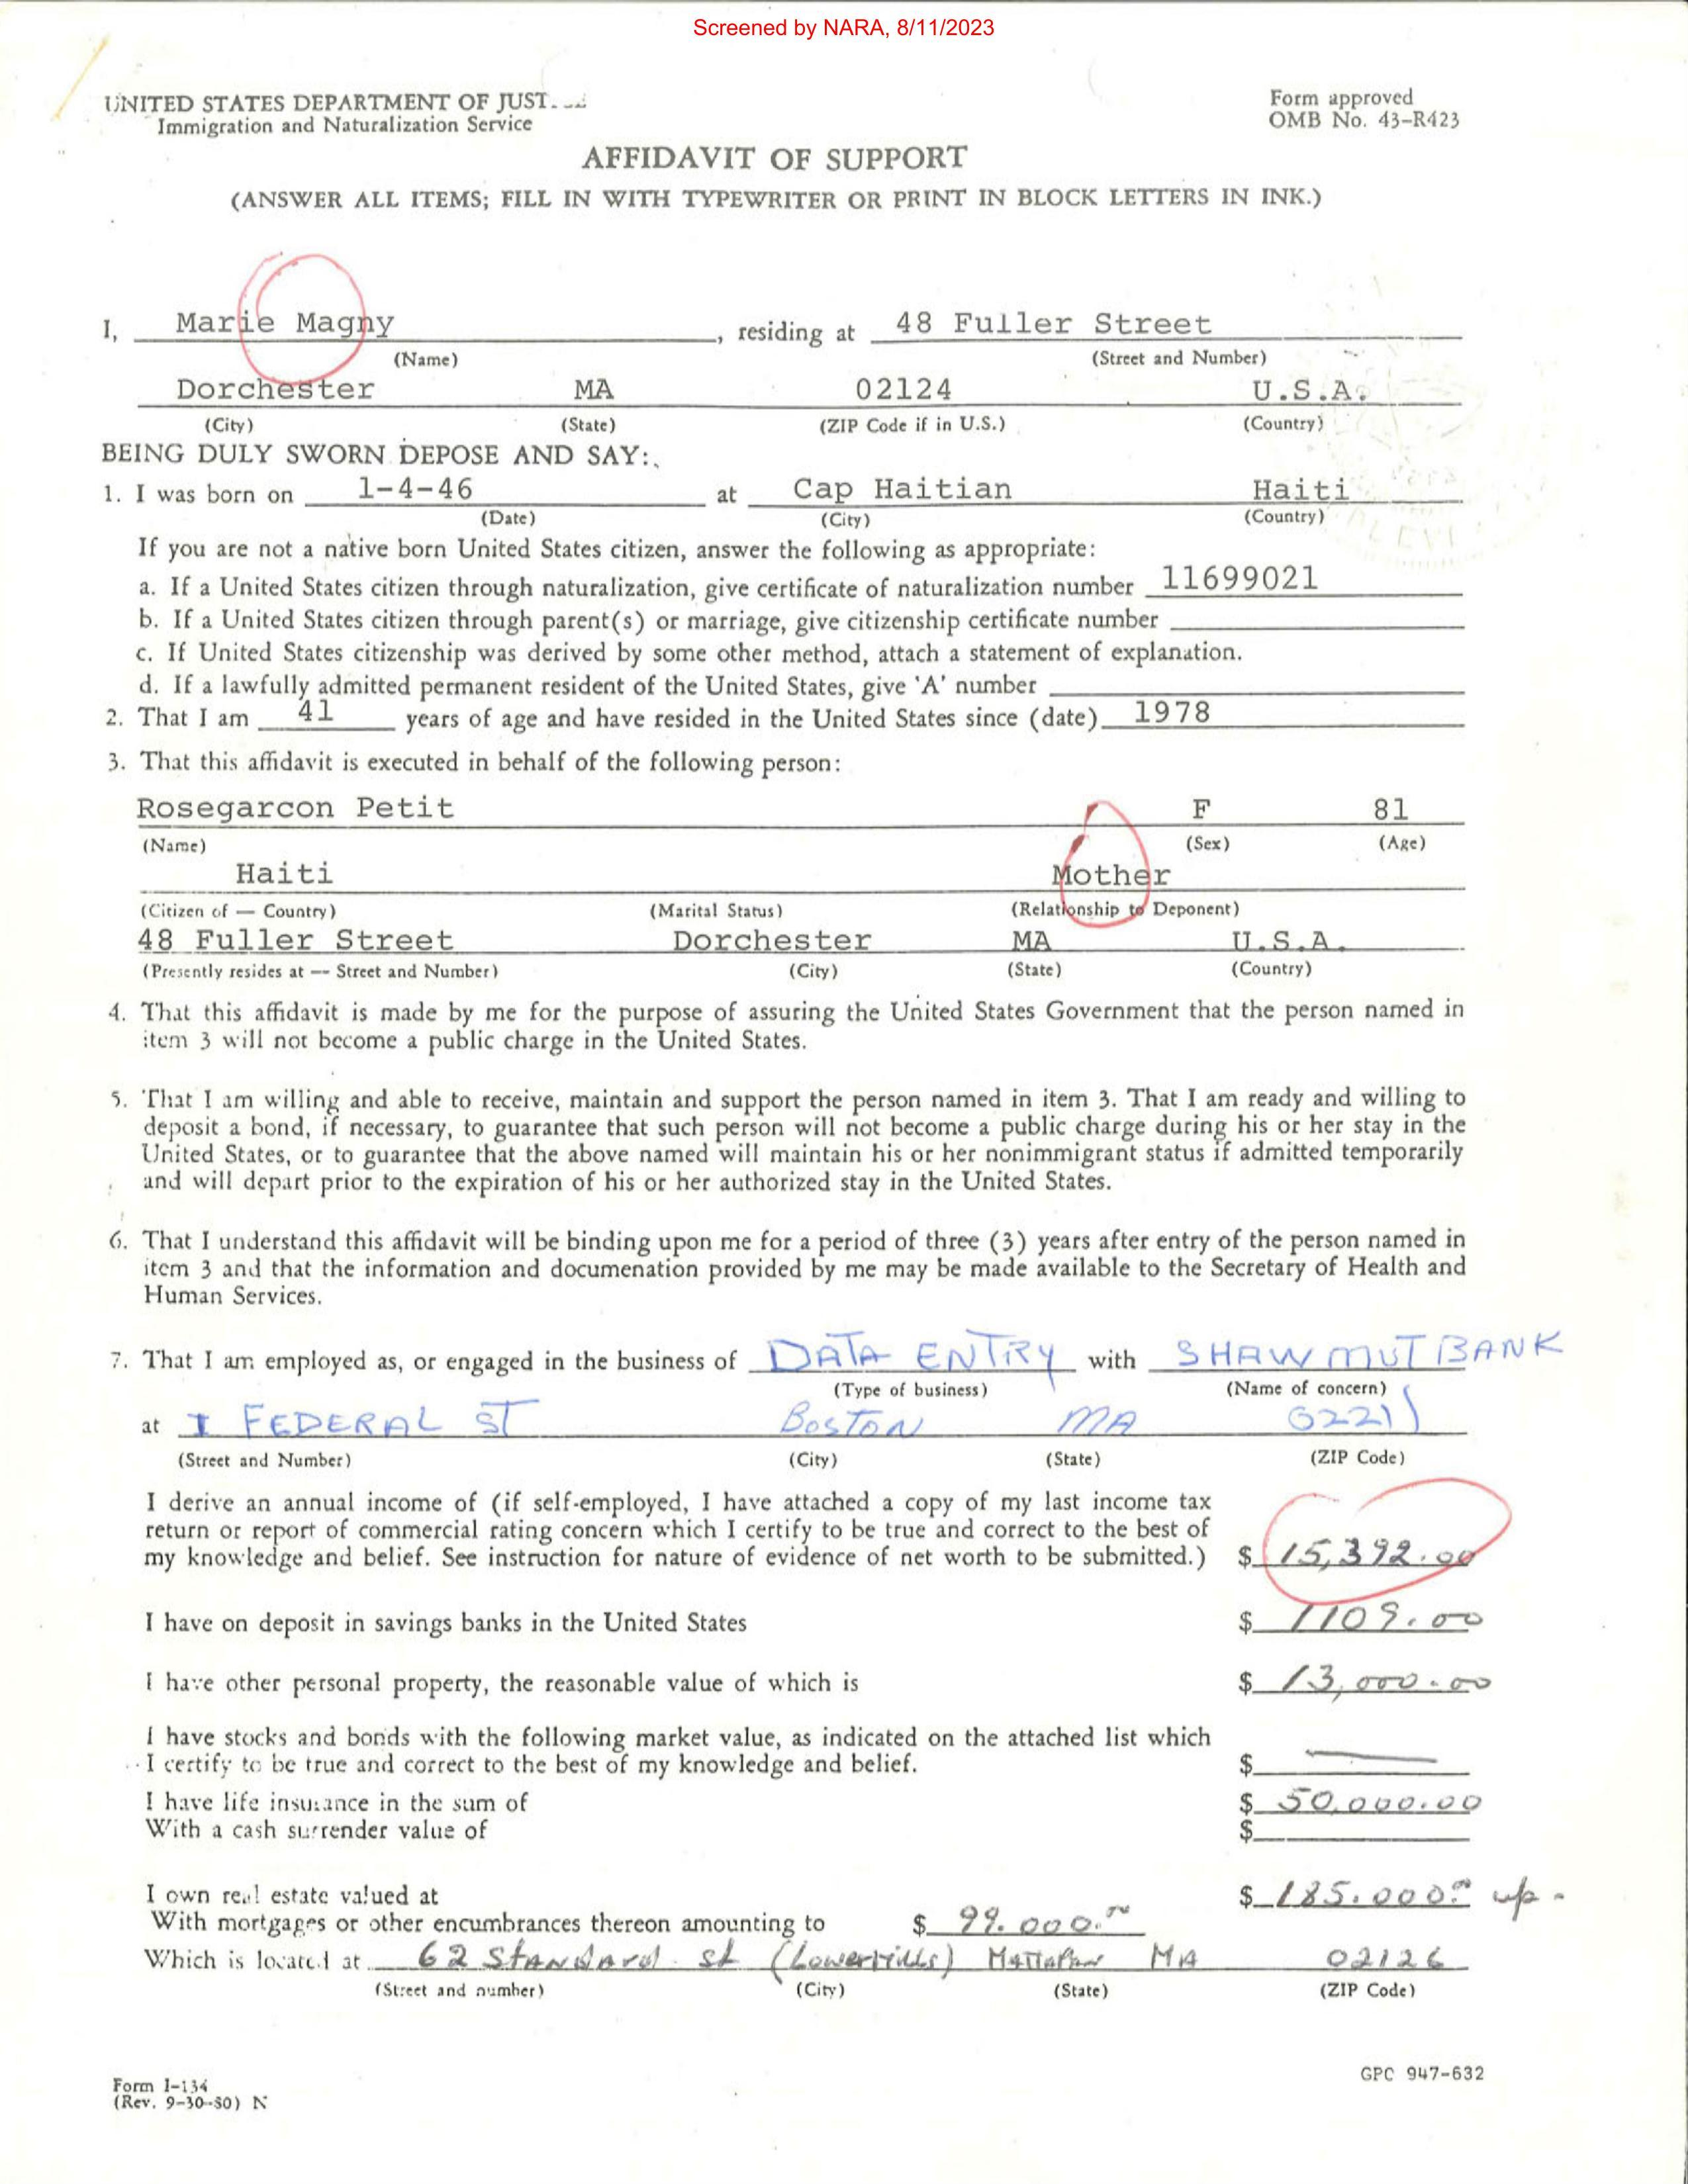 Screened by NARA, 8/11/2023
UNITED STATES DEPARTMENT OF
Immigration and Naturalization Service
Form approved
OMB No. 43-R423
AFFIDAVIT OF SUPPORT
(ANSWER ALL ITEMS; FILL IN WITH TYPEWRITER OR PRINT IN BLOCK LETTERS IN INK.)
I, Marie Magny, residing at 48 Fuller Street
(Name) (Street and Number)
Dorchester MA 02124 U.S.A.
(City) (State) (ZIP Code if in U.S.) (Country)
BEING DULY SWORN DEPOSE AND SAY:
1. I was born on 1-4-46 at Cap Haitian Haiti
(Date) (City) (Country)
If you are not a native born United States citizen, answer the following as appropriate:
a. If a United States citizen through naturalization, give certificate of naturalization number 11699021
b. If a United States citizen through parent(s) or marriage, give citizenship certificate number
c. If United States citizenship was derived by some other method, attach a statement of explanation.
d. If a lawfully admitted permanent resident of the United States, give 'A' number
2. That I am 41 years of age and have resided in the United States since (date) 1978
3. That this affidavit is executed in behalf of the following person:
Rosegarcon Petit F 81
(Name) (Sex) (Age)
Haiti Mother
(Citizen of — Country) (Marital Status) (Relationship to Deponent)
48 Fuller Street Dorchester MA U.S.A.
(Presently resides at -- Street and Number) (City) (State) (Country)
4. That this affidavit is made by me for the purpose of assuring the United States Government that the person named in
item 3 will not become a public charge in the United States.
5. That I am willing and able to receive, maintain and support the person named in item 3. That I am ready and willing to
deposit a bond, if necessary, to guarantee that such person will not become a public charge during his or her stay in the
United States, or to guarantee that the above named will maintain his or her nonimmigrant status if admitted temporarily
and will depart prior to the expiration of his or her authorized stay in the United States.
6. That I understand this affidavit will be binding upon me for a period of three (3) years after entry of the person named in
item 3 and that the information and documenation provided by me may be made available to the Secretary of Health and
Human Services.
7. That I am employed as, or engaged in the business of DATA ENTRY with SHAWMUT BANK
(Type of business) (Name of concern)
at 1 FEDERAL ST BOSTON MA 02211
(Street and Number) (City) (State) (ZIP Code)
I derive an annual income of (if self-employed, I have attached a copy of my last income tax
return or report of commercial rating concern which I certify to be true and correct to the best of
my knowledge and belief. See instruction for nature of evidence of net worth to be submitted.) $ 15,392.00
I have on deposit in savings banks in the United States $ 1109.00
I have other personal property, the reasonable value of which is $ 13,000.00
I have stocks and bonds with the following market value, as indicated on the attached list which
I certify to be true and correct to the best of my knowledge and belief. $ —
I have life insurance in the sum of $ 50,000.00
With a cash surrender value of $
I own real estate valued at $ 185.000.00 up -
With mortgages or other encumbrances thereon amounting to $ 99.000.00
Which is located at 62 Standard St (Lowermills) Mattapan MA 02126
(Street and number) (City) (State) (ZIP Code)
Form I-134
(Rev. 9-30-80) N
GPC 947-632